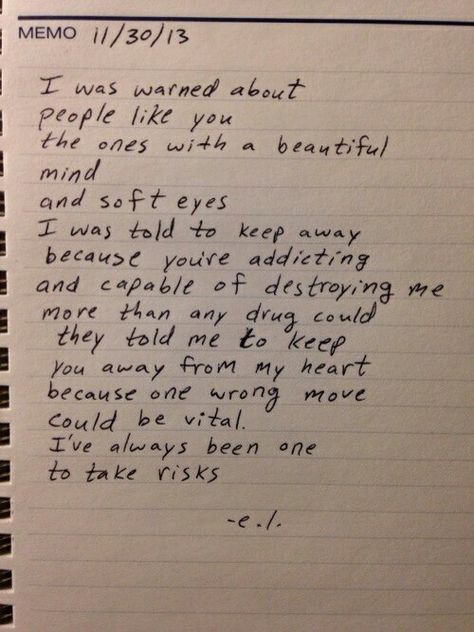 MEMO 11/30/13
I was warned about
people like you
the ones with a beautiful
mind
and soft eyes
I was told to keep away
because you're addicting
and capable of destroying me
more than any drug could
they told me to keep
you away from my heart
because one wrong move
could be vital.
I've always been one
to take risks
-e.l.